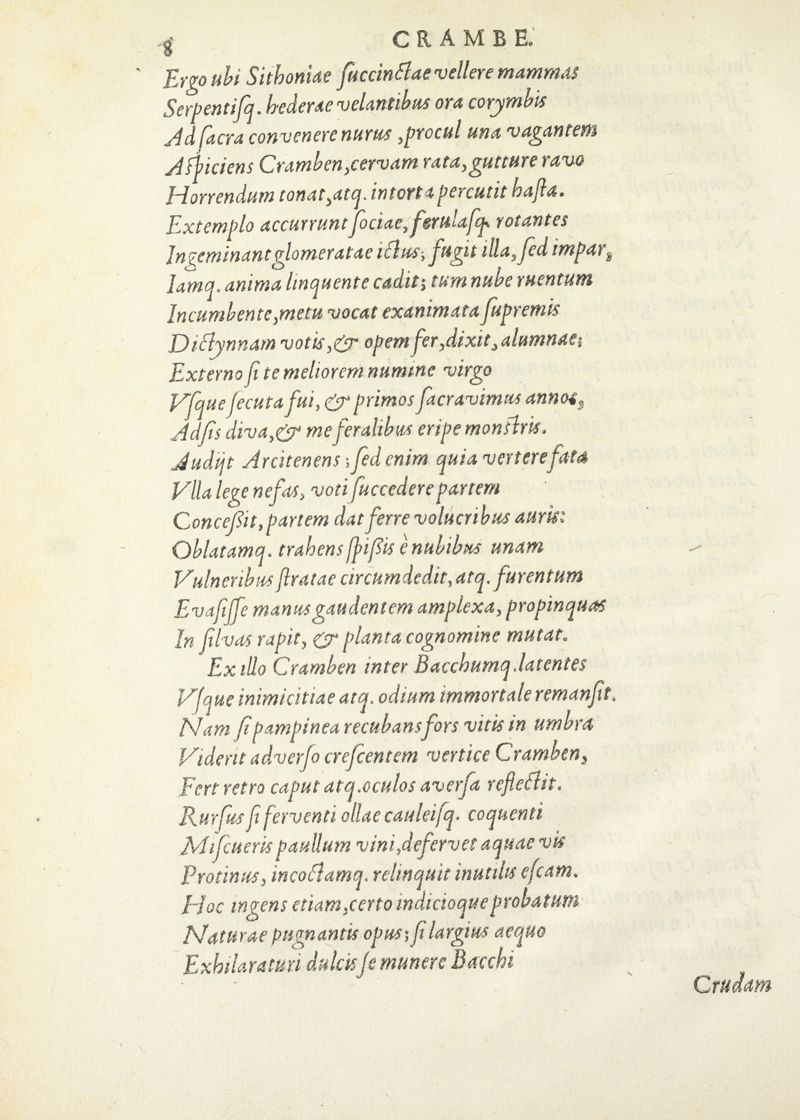 8 CRAMBE.
Ergo ubi Sithoniae succinctae vellere mammas
Serpentisq. hederae velantibus ora corymbis
Ad sacra convenere nurus, procul una vagantem
Aspiciens Cramben, cervam rata, gutture ravo
Horrendum tonat, atq. intorta percutit hasta.
Extemplo accurrunt sociae, ferulasq. rotantes
Ingeminant glomeratae ictus; fugit illa, sed impar,
Iamq. anima linquente cadit; tum nube ruentum
Incumbente, metu vocat exanimata supremis
Dictynnam votis, & opem fer, dixit, alumnae;
Externo si te meliorem numine virgo
Vsque secuta fui, & primos sacravimus annos,
Adsis diva, & me feralibus eripe monstris.
Audijt Arcitenens; sed enim quia vertere fata
Vlla lege nefas, voti succedere partem
Concessit, partem dat ferre volucribus auris:
Oblatamq. trahens spissis è nubibus unam
Vulneribus stratae circumdedit, atq. furentum
Evasisse manus gaudentem amplexa, propinquas
In silvas rapit, & planta cognomine mutat.
Ex illo Cramben inter Bacchumq. latentes
Vsque inimicitiae atq. odium immortale remansit.
Nam si pampinea recubans fors vitis in umbra
Viderit adverso crescentem vertice Cramben,
Fert retro caput atq. oculos aversa reflectit.
Rursus si ferventi ollae cauleisq. coquenti
Miscueris paullum vini, defervet aquae vis
Protinus, incoctamq. relinquit inutilis escam.
Hoc ingens etiam, certo indicioque probatum
Naturae pugnantis opus; si largius aequo
Exhilaraturi dulcis se munere Bacchi
Crudam